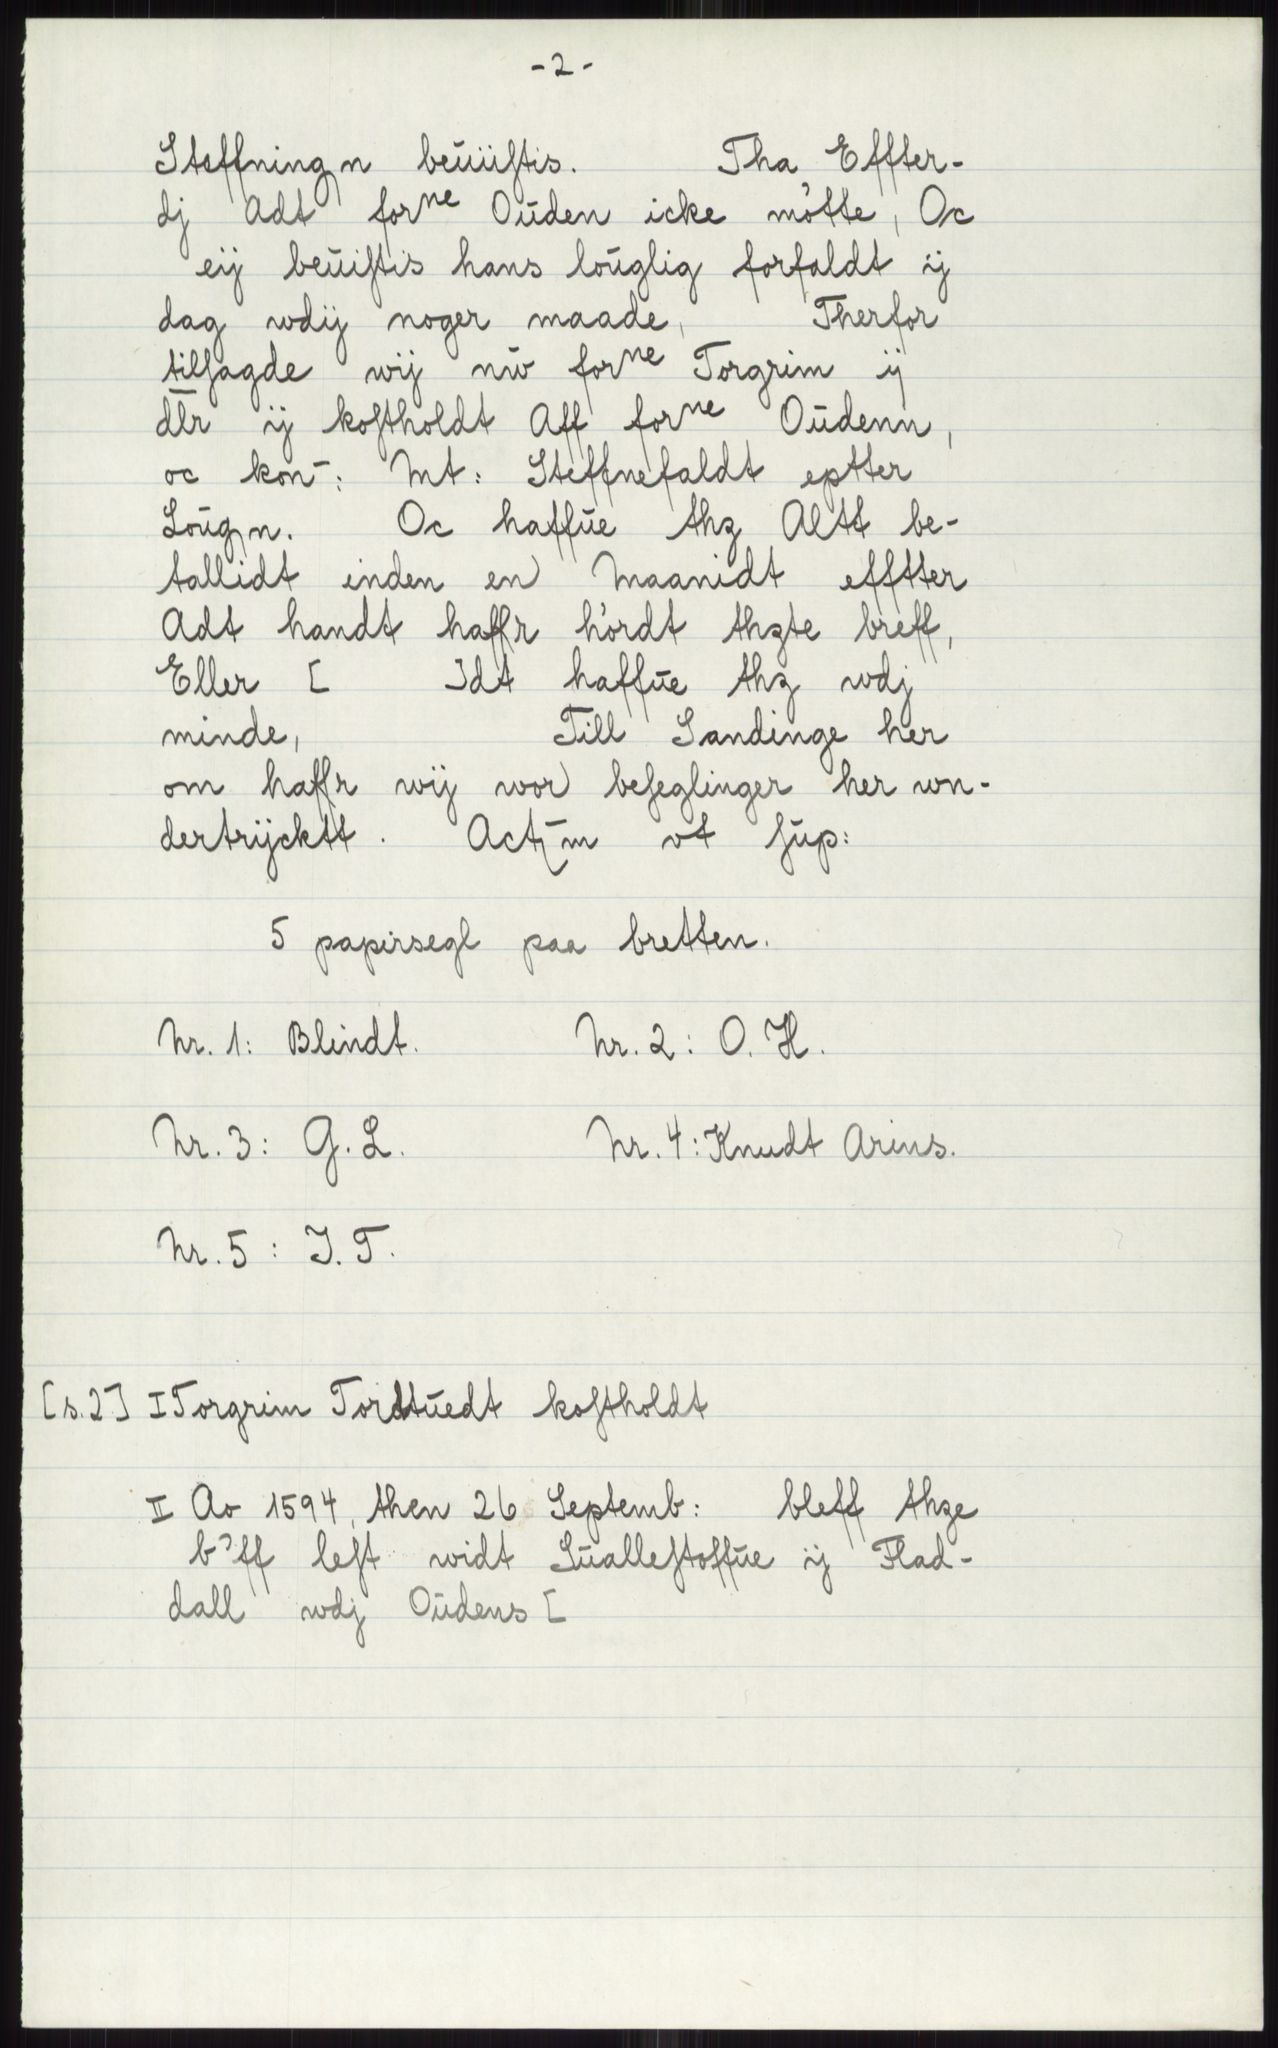 - 2 -
Steffningn beuiistis. Tha Effter-
dj Adt forne Ouden icke møtte, Oc
eij beuistis hans louglig forfaldt ij
dag wdij noger maade, Therfor
tilsagde wij nw forne Torgrim ij
dlr ij kostholdt Aff forne Oudenn,
oc kon: Mt: Steffnefaldt eptter
Lougn. Oc haffue thz Altt be-
tallidt inden en Maanidt efftter
Adt handt haffr hørdt thzte breff,
Eller [ ]dt haffue thz wdj
minde, Till Sandinge her
om haffr wij wor beseglinger her wn-
dertrijcktt. Actm vt sup:
5 papirsegl paa bretten.
Nr. 1: Blindt. Nr. 2: O. H.
Nr. 3: G. L. Nr. 4: Knudt Arins.
Nr. 5: J. T.
[s. 2] I Torgrim Tordtuedt kostholdt
II Ao 1594, then 26 Septemb: bleff thze
b'ff lest widt Suallestoffue ij Flad-
dall wdj Oudens [